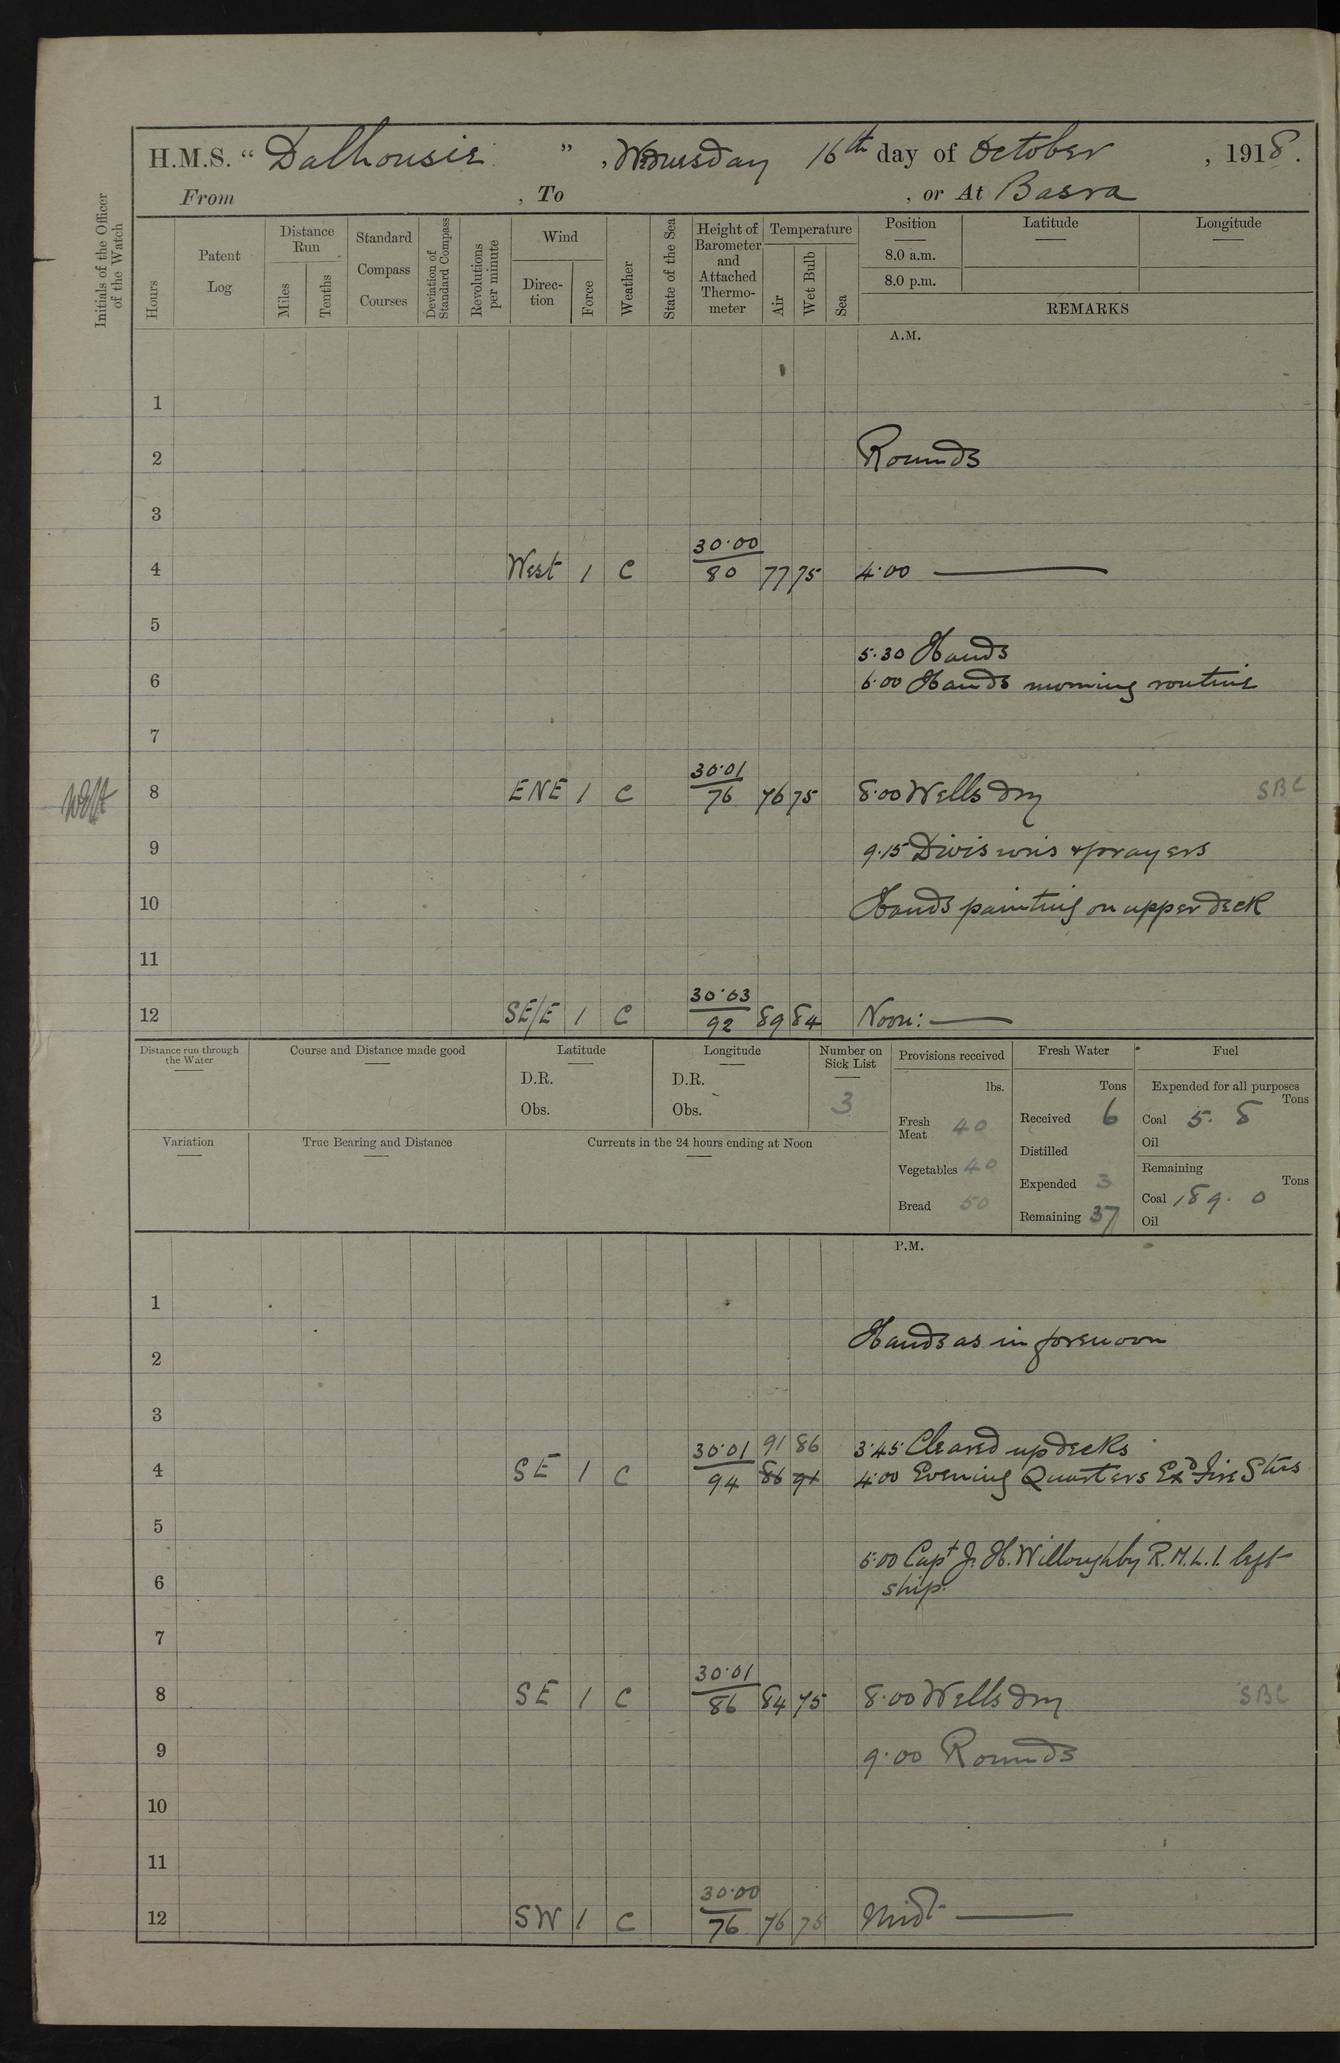 H.M.S. “ Dalhousie ” , Wednesday 16th day of October , 1918.
From , To , or At Basra
Initials of the Officer of the Watch
Hours
Patent Log
Distance Run
Miles
Tenths
Standard Compass Courses
Deviation of Standard Compass
Revolutions per minute
Wind
Direc-tion
Force
Weather
State of the Sea
Height of Barometer and Attached Thermo-meter
Temperature
Air
Wet Bulb
Sea
Position
Latitude
Longitude
8.0 a.m.
8.0 p.m.
REMARKS
A.M.
1
2 Rounds
3
30.00
4 West 1 C 80 77 75 4.00 ———
5
5.30 Hands
6 6.00 Hands morning routine
7
30.01
8 ENE 1 C 76 76 75 8.00 Wells dry SBC
9 9.15 Divisions & prayers
10 Hands painting on upper deck
11
30.03
12 SE/E 1 C 92 89 84 Noon: ———
Distance run through the Water
Course and Distance made good
Latitude
D.R.
Obs.
Longitude
D.R.
Obs.
Number on Sick List
3
Provisions received
lbs.
Fresh Meat 40
Vegetables 40
Bread 50
Fresh Water
Tons
Received 6
Distilled
Expended 3
Remaining 37
Fuel
Expended for all purposes
Tons
Coal 5. 8
Oil
Remaining
Tons
Coal 189. 0
Oil
Variation
True Bearing and Distance
Currents in the 24 hours ending at Noon
P.M.
1
Hands as in forenoon
2
3
30.01 91 86 3.45 Cleared up decks
4 SE 1 C 94 86 91 4.00 Evening Quarters Exd Fire Stns
5
5.00 Capt J. H. Willoughby R.M.L.I. left
6 ship.
7
30.01
8 SE 1 C 86 84 75 8.00 Wells dry SBC
9 9.00 Rounds
10
11
30.00
12 SW 1 C 76 76 75 Midt ———